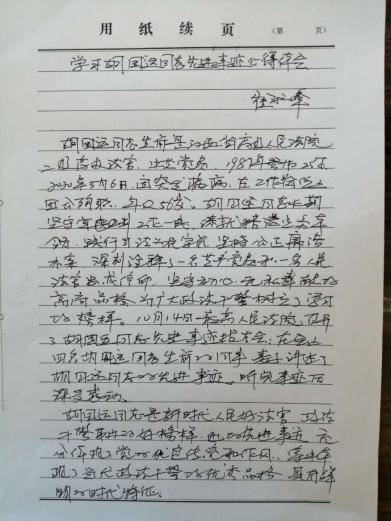 用纸续页 （第 页）
学习胡国运同志先进事迹心得体会
胡国运同志生前是江西省高级人民法院
二级高级法官，中共党员，1987年参加工作
2020年5月6日，因突发疾病，在工作岗位上
因公殉职，年仅56岁。胡国运同志长期
坚守审判工作一线，
践行司法为民宗旨，坚持公正廉洁
办案，深刻诠释了一名共产党员和一名人民
法官忠诚信仰，坚守初心，无私奉献的
高尚品格，为广大政法干警树立了学习
的榜样。10月14日最高人民法院召开
了胡国运同志先进事迹报告会，在会上
四名胡国运同志生前的同事、妻子讲述了
胡国运同志的先进事迹，听完事迹后
深受感动。
胡国运同志是新时代人民好法官，政法
干警队伍的好榜样，他的先进事迹，充
分体现了党的优良传统和作风，集中体
现了当代政法干警的优秀品格，具有鲜
明的时代特征。